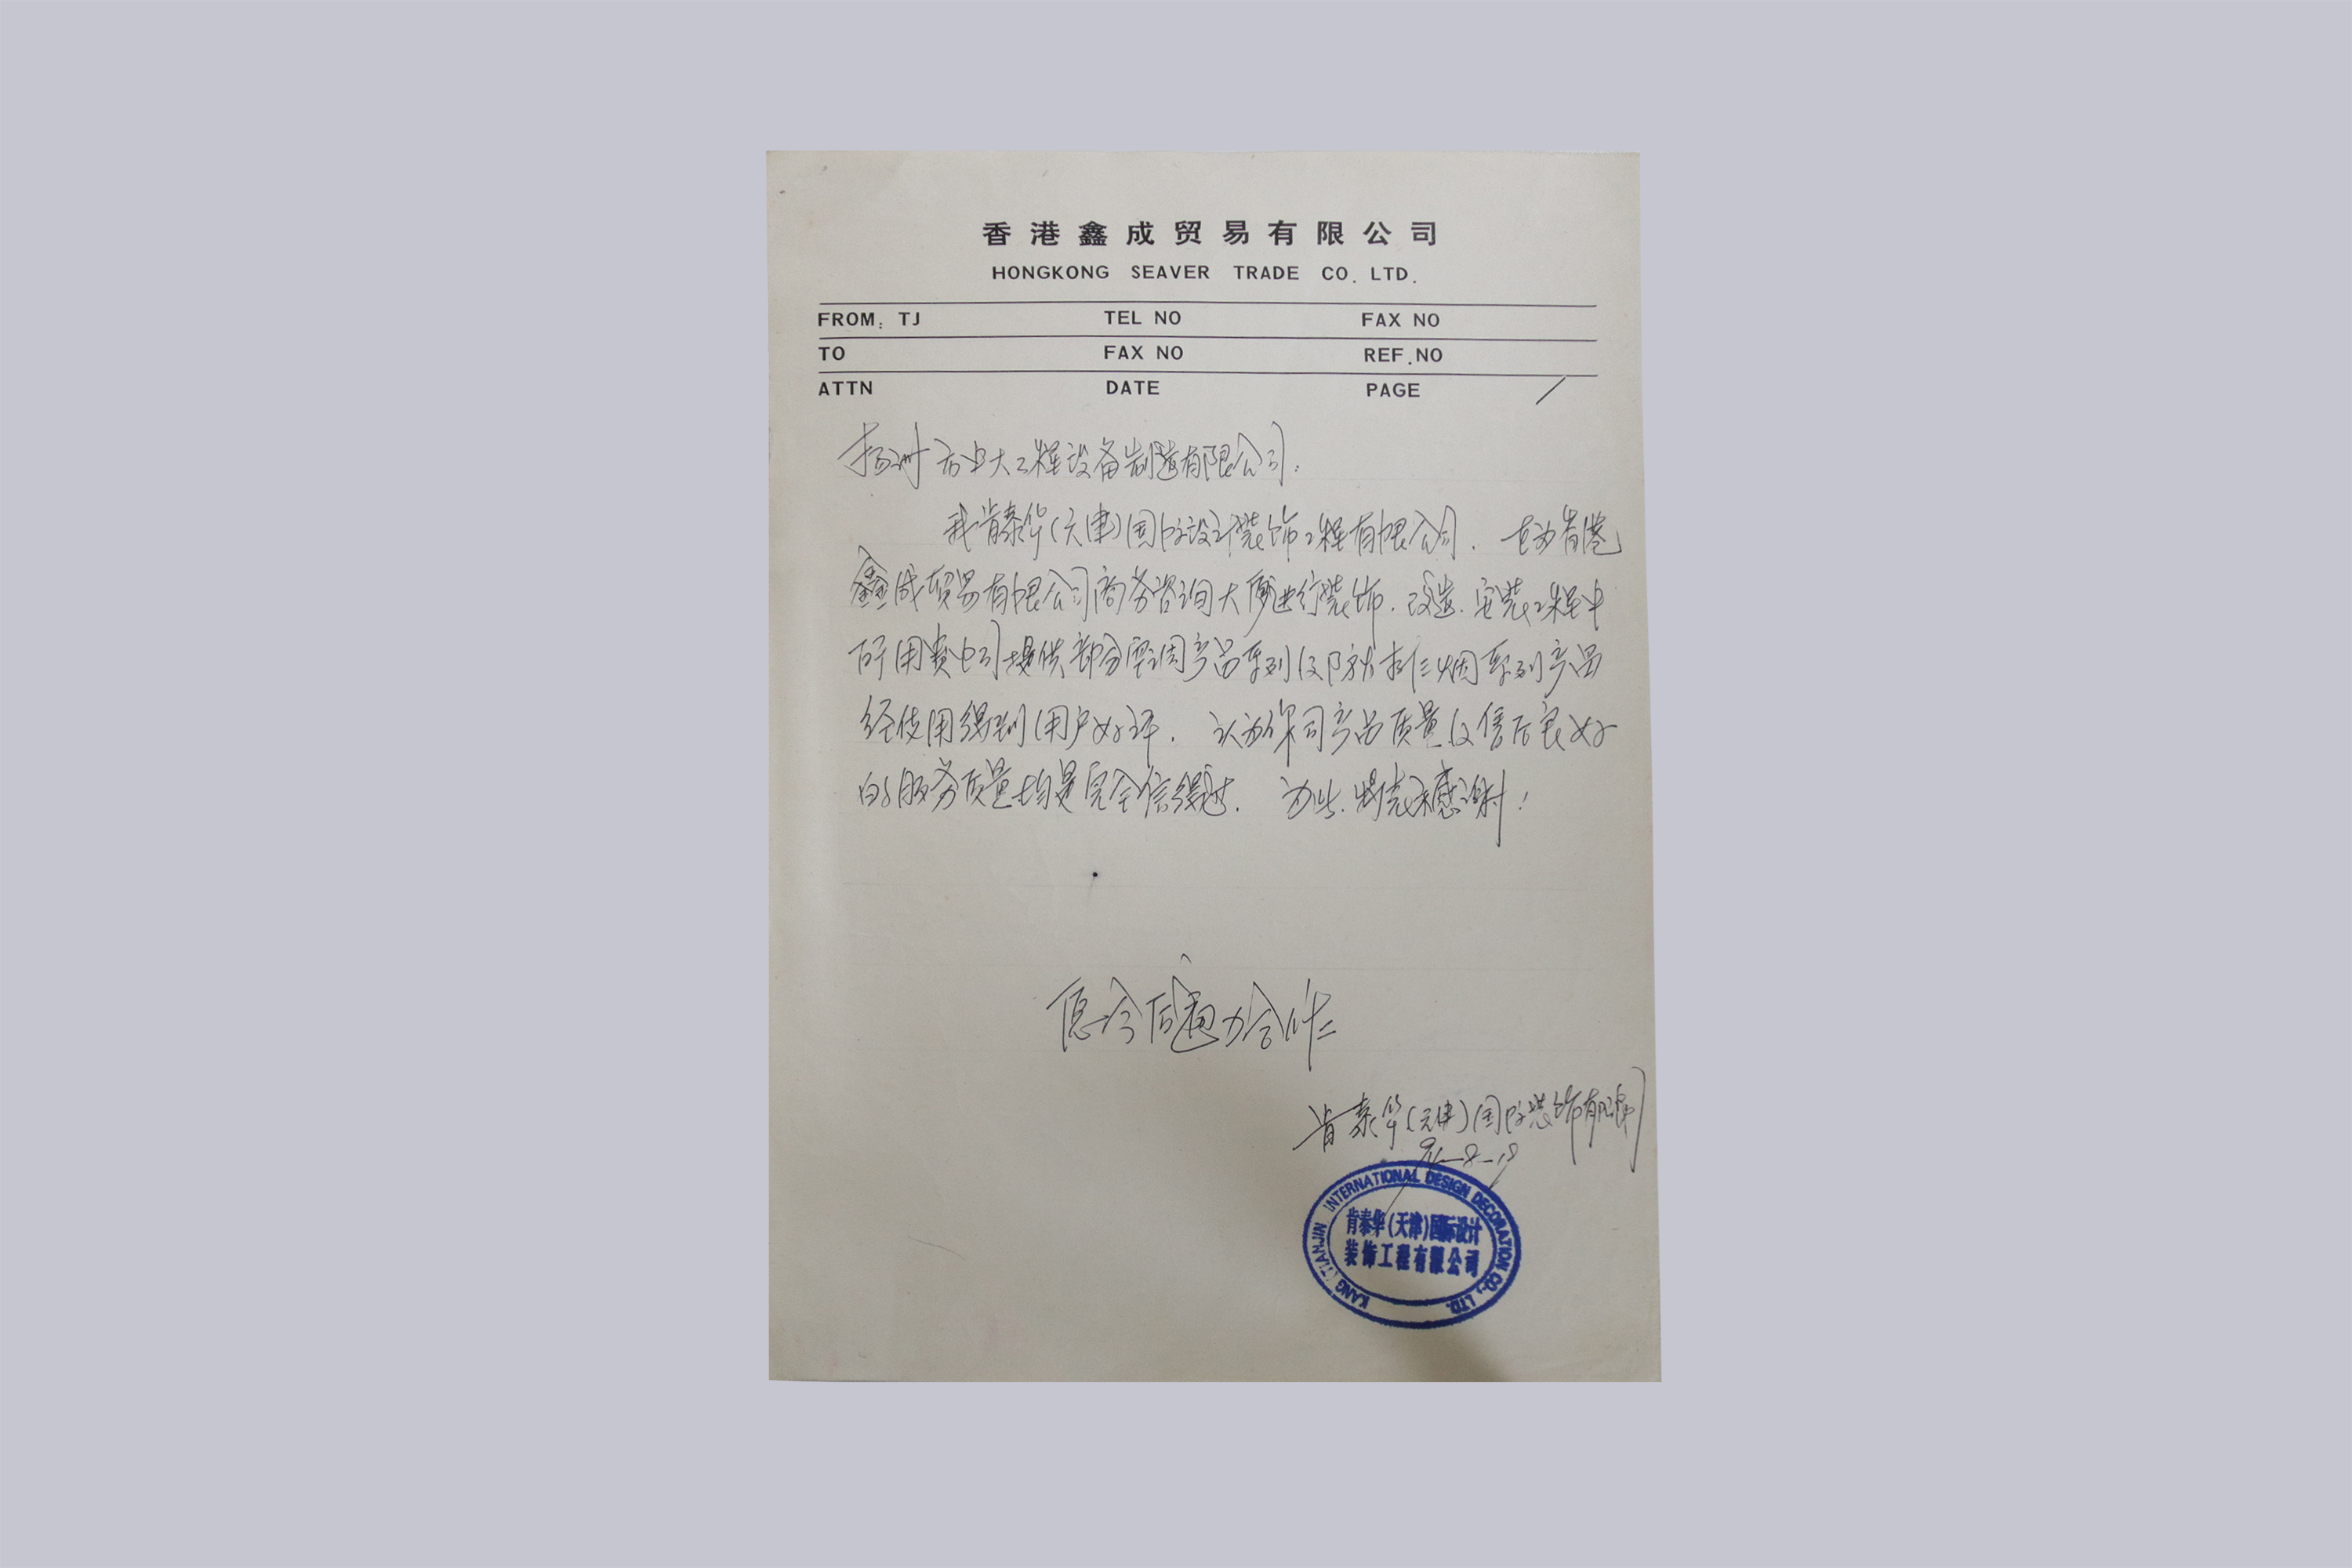 香港鑫成贸易有限公司
HONGKONG SEAVER TRADE CO. LTD.
FROM: TJ TEL NO FAX NO
TO FAX NO REF.NO
ATTN DATE PAGE /
扬州大工程设备制造有限公司:
我肯泰华(天津)国际设计装饰工程有限公司. 在为香港
鑫成贸易有限公司商务咨询大厦进行装饰.改造.安装工程中
所用贵公司提供部分空调产品系列及防火排烟系列产品
经使用得到用户好评. 认为你司产品质量及售后良好
的服务质量均是完全信得过. 为此.特表示感谢!
愿今后通力合作
肯泰华(天津)国际装饰有限公司
KANG (TIANJIN INTERNATIONAL DESIGN DECORATION CO., LTD.
肯泰华(天津)国际设计
装饰工程有限公司